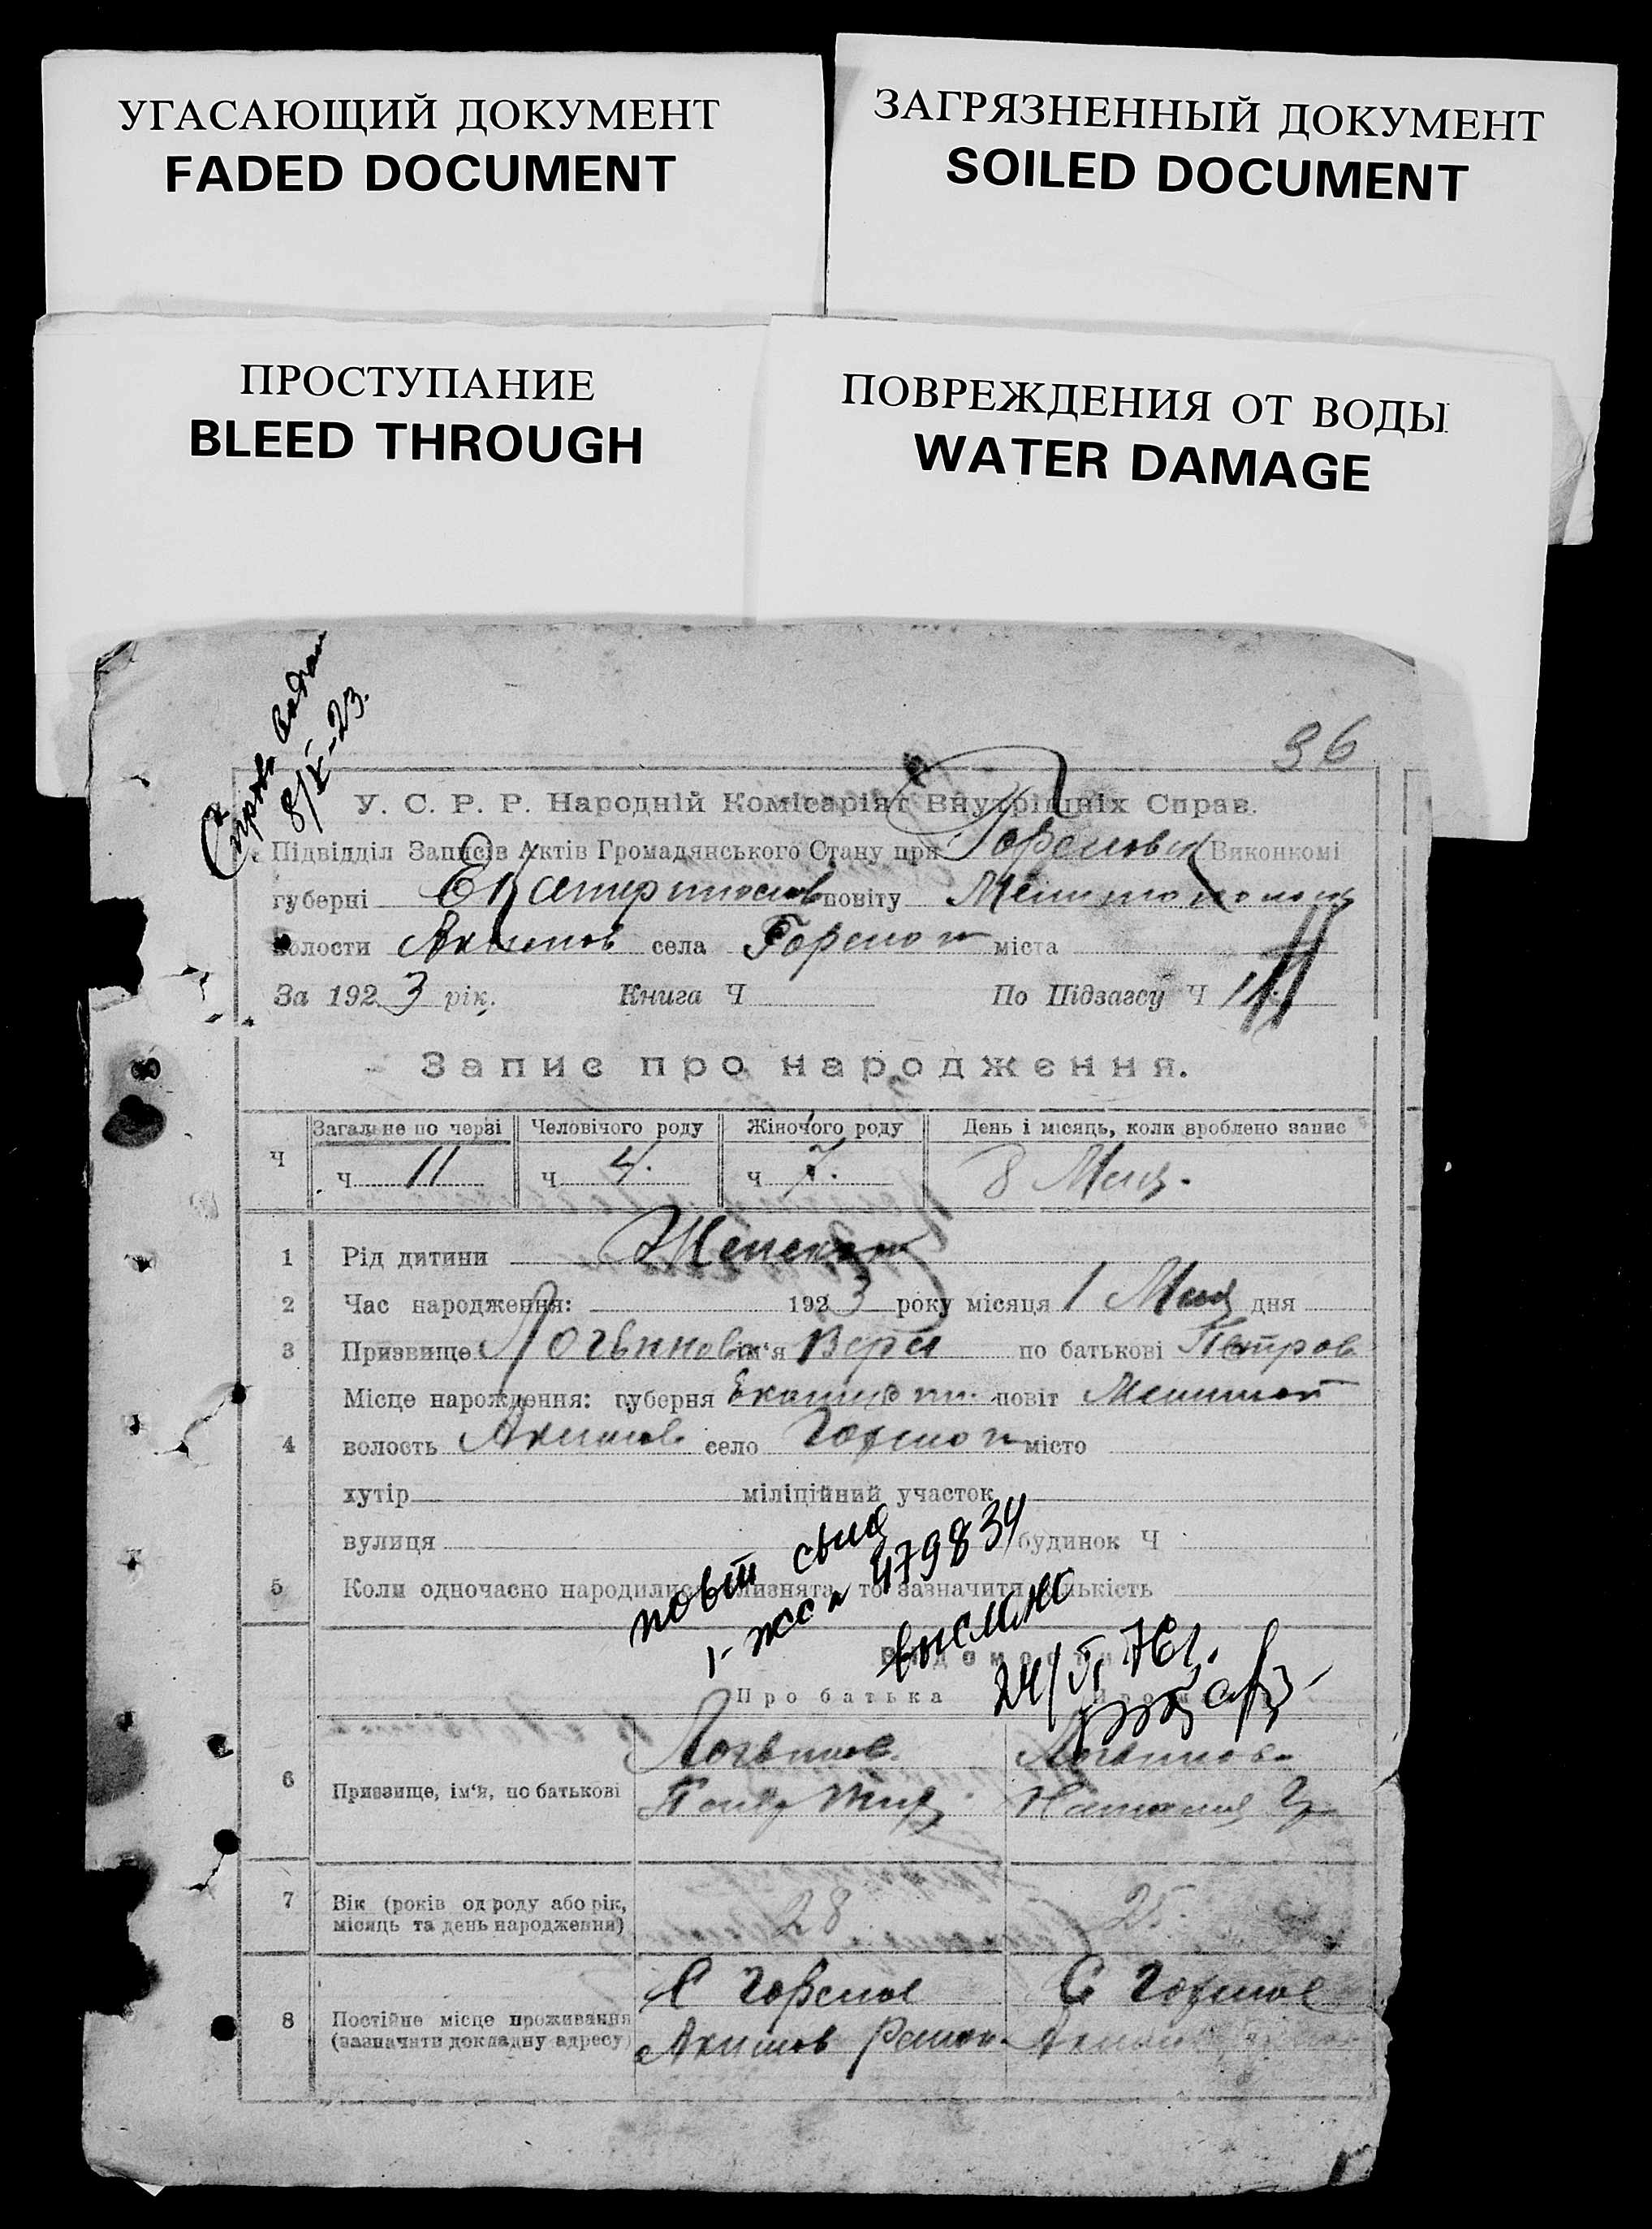 УГАСАЮЩИЙ ДОКУМЕНТ
FADED DOCUMENT
ЗАГРЯЗНЕННЫЙ ДОКУМЕНТ
SOILED DOCUMENT
ПРОСТУПАНИЕ
BLEED THROUGH
ПОВРЕЖДЕНИЯ ОТ ВОДЫ
WATER DAMAGE
36
8/V-23.
У. С. Р. Р. Народній Комісаріят Внутрішніх Справ.
Підвідділ Записів Актів Громадянського Стану при Виконкомі
губерні повіту
волости Акимов села міста
За 1923 рік. Книга Ч По Підзагсу Ч 11
Запис про народження.
Ч Загальне по черзі Человічого роду Жіночого роду День і місяць, коли зроблено запис
ч 11 ч 4. ч 7. 8 Мая.
1 Рід дитини Женского
2 Час народження: 1923 року місяця 1 Мая дня
3 Призвище Логвинова ім'я Вера по батькові Петров
Місце народження: губерня повіт
4 волость Акимов село місто
хутір міліційний участок
вулиця будинок Ч
5 Коли одночасно народились близнята, то зазначити кількість
повт свид
1-жс № 479834
выслано
24/VI 76г.
Відомости
Про батька Про матір
6 Призвище, ім'я, по батькові
Логвинов Логвинова
Петр Наталия
7 Вік (років од роду або рік, місяць та день народження) 28 25.
8 Постійне місце проживання (зазначити докладну адресу)
С С
Акимов район